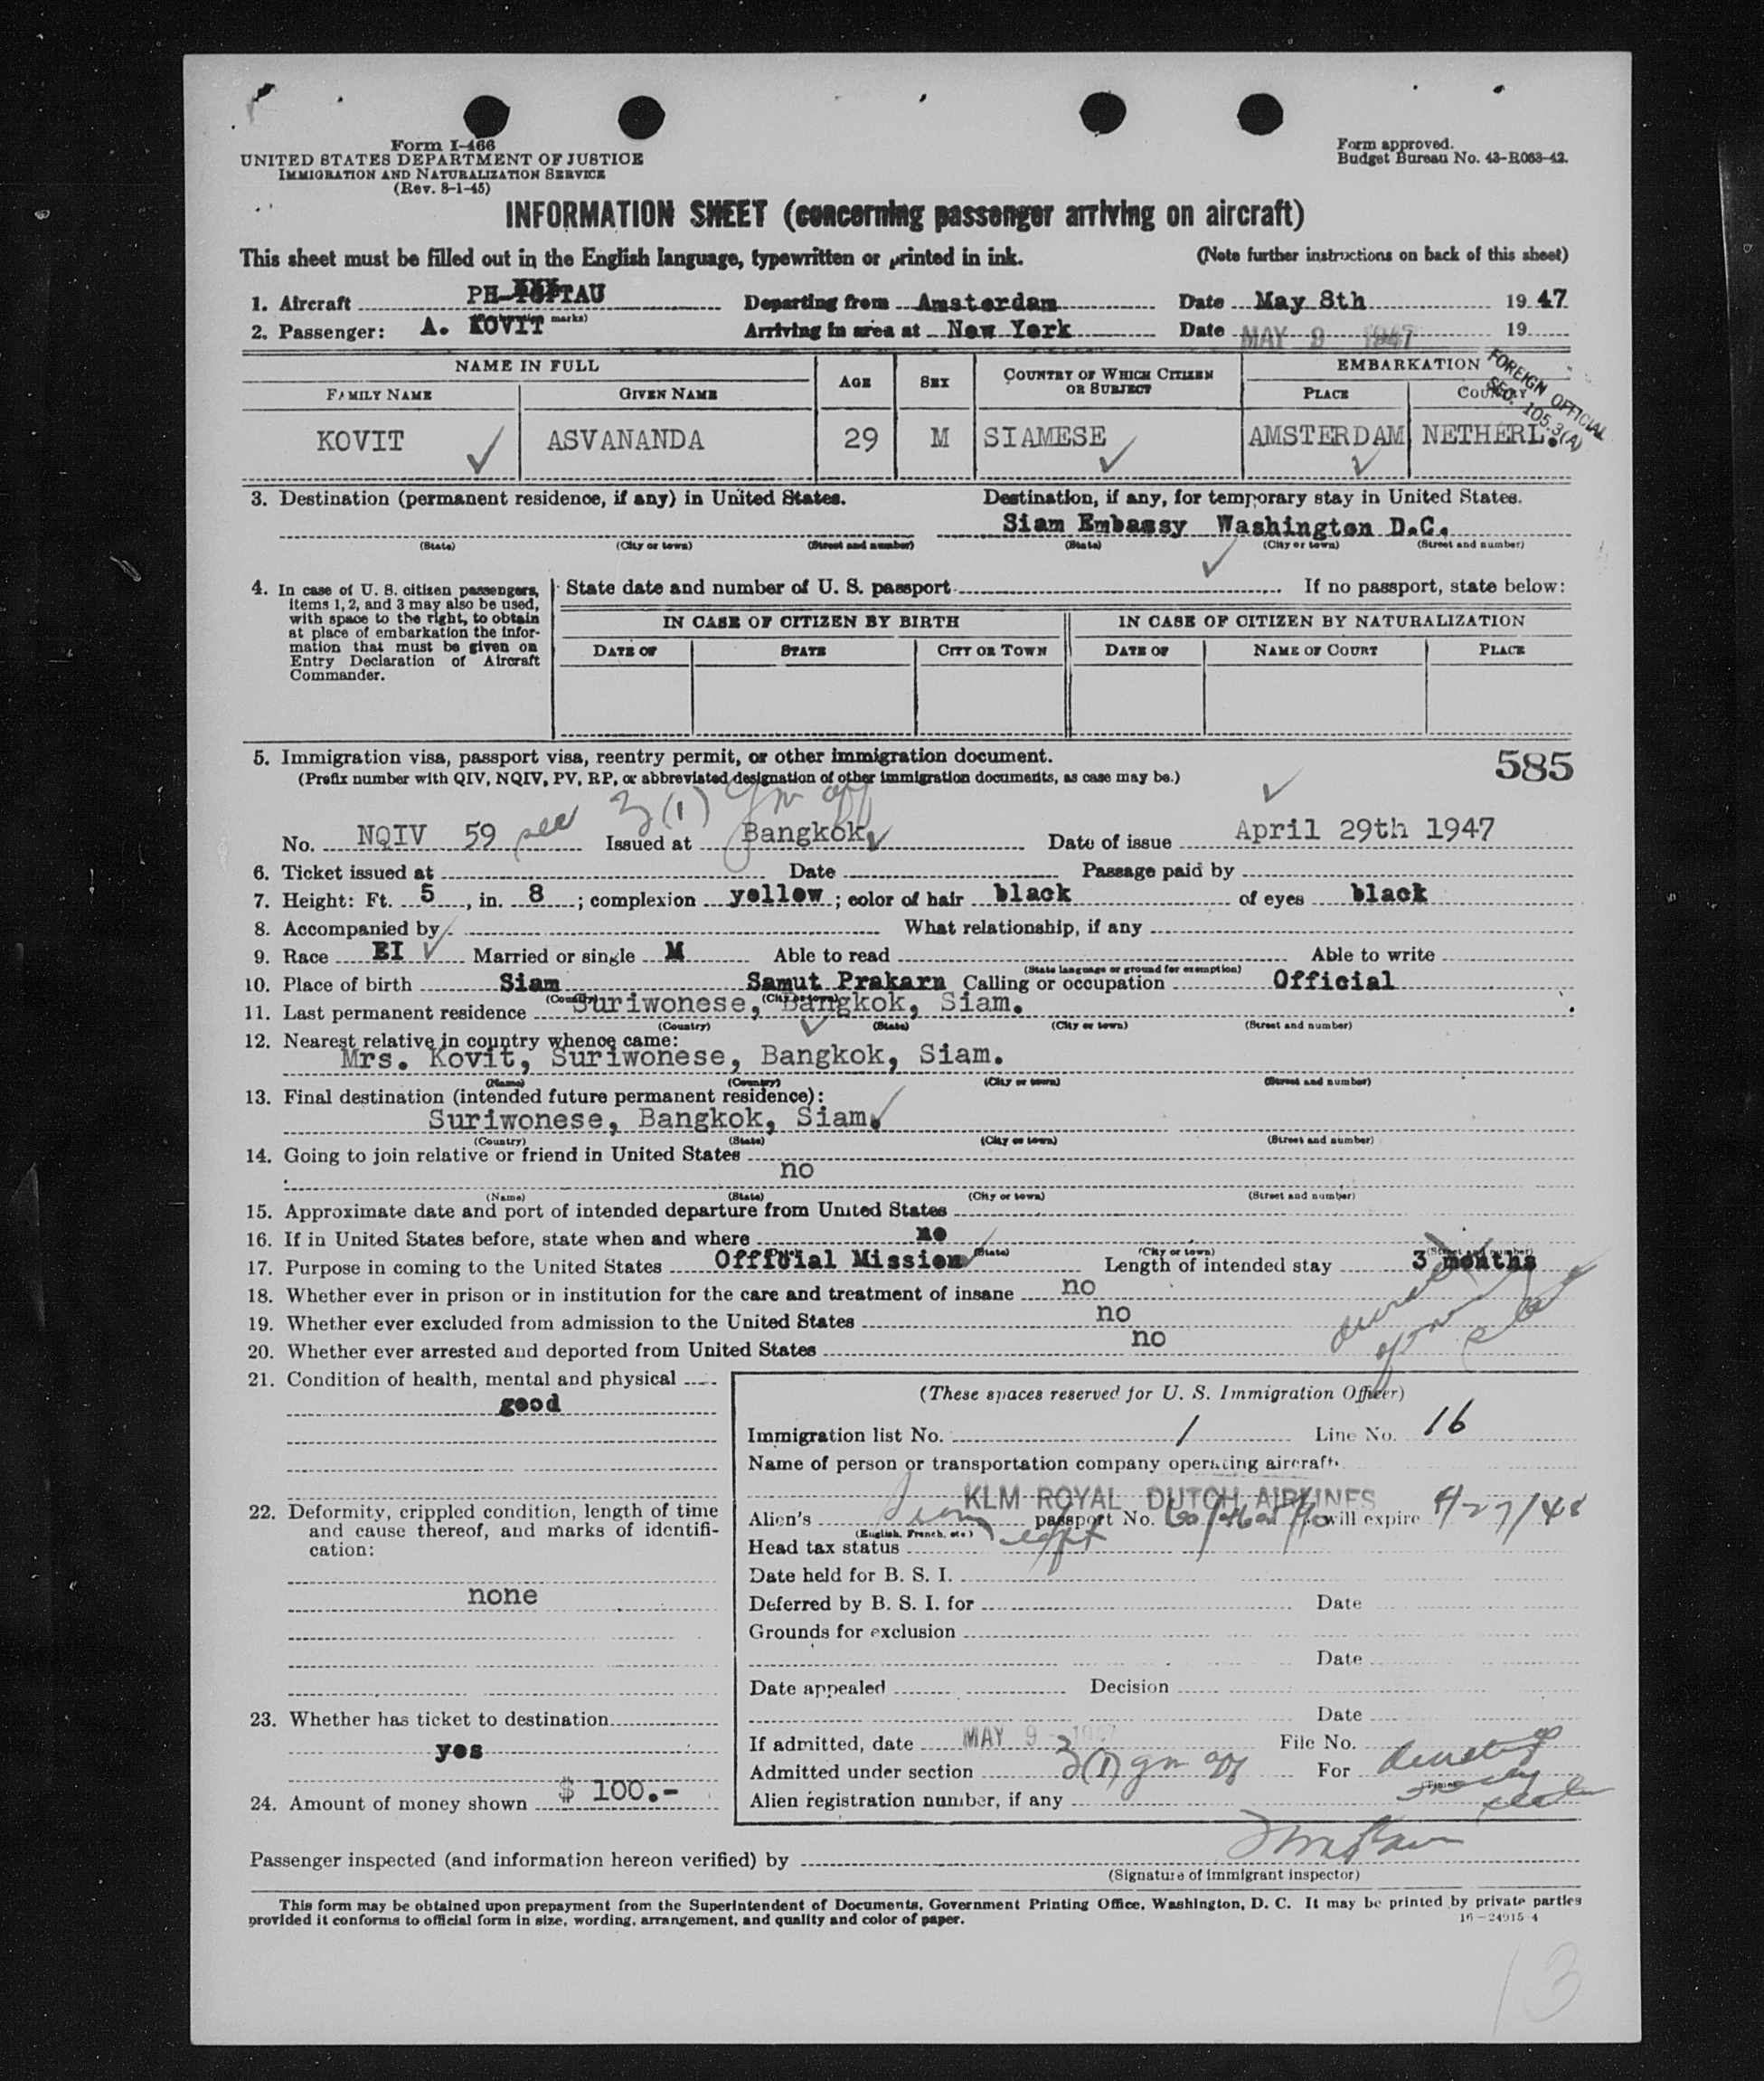 Form I-466
UNITED STATES DEPARTMENT OF JUSTICE
IMMIGRATION AND NATURALIZATION SERVICE
(Rev. 8-1-45)
Form approved.
Budget Bureau No. 43-R063-42.
INFORMATION SHEET (concerning passenger arriving on aircraft)
This sheet must be filled out in the English language, typewritten or printed in ink.
(Note further instructions on back of this sheet)
1. Aircraft PH-TAU Departing from Amsterdam Date May 8th 1947
2. Passenger: A. KOVIT marks) Arriving in area at New York Date MAY 9 1947 19
NAME IN FULL AGE SEX COUNTRY OF WHICH CITIZEN OR SUBJECT EMBARKATION
FAMILY NAME GIVEN NAME PLACE COUNTRY
FOREIGN OFFICIAL
SEC. 105.3(A)
KOVIT ASVANANDA 29 M SIAMESE AMSTERDAM NETHERL.
3. Destination (permanent residence, if any) in United States. Destination, if any, for temporary stay in United States.
Siam Embassy Washington D.C.
(State) (City or town) (Street and number) (State) (City or town) (Street and number)
4. In case of U. S. citizen passengers, items 1, 2, and 3 may also be used, with space to the right, to obtain at place of embarkation the information that must be given on Entry Declaration of Aircraft Commander.
State date and number of U. S. passport If no passport, state below:
IN CASE OF CITIZEN BY BIRTH IN CASE OF CITIZEN BY NATURALIZATION
DATE OF STATE CITY OR TOWN DATE OF NAME OF COURT PLACE
5. Immigration visa, passport visa, reentry permit, or other immigration document. 585
(Prefix number with QIV, NQIV, PV, RP, or abbreviated designation of other immigration documents, as case may be.)
3(1)
No. NQIV 59 Issued at Bangkok Date of issue April 29th 1947
6. Ticket issued at Date Passage paid by
7. Height: Ft. 5, in. 8; complexion yellow; color of hair black of eyes black
8. Accompanied by What relationship, if any
9. Race EI Married or single M Able to read Able to write
(State language or ground for exemption)
10. Place of birth Siam Samut Prakarn Calling or occupation Official
(Country) (City or town)
11. Last permanent residence Suriwonese, Bangkok, Siam.
(Country) (State) (City or town) (Street and number)
12. Nearest relative in country whence came:
Mrs. Kovit, Suriwonese, Bangkok, Siam.
(Name) (Country) (City or town) (Street and number)
13. Final destination (intended future permanent residence):
Suriwonese, Bangkok, Siam.
(Country) (State) (City or town) (Street and number)
14. Going to join relative or friend in United States
no
(Name) (State) (City or town) (Street and number)
15. Approximate date and port of intended departure from United States
16. If in United States before, state when and where no
(State) (City or town) (Street and number)
17. Purpose in coming to the United States Official Mission Length of intended stay 3 months
18. Whether ever in prison or in institution for the care and treatment of insane no
19. Whether ever excluded from admission to the United States no
20. Whether ever arrested and deported from United States no
21. Condition of health, mental and physical
good
22. Deformity, crippled condition, length of time and cause thereof, and marks of identification:
none
23. Whether has ticket to destination
yes
24. Amount of money shown $ 100.-
(These spaces reserved for U. S. Immigration Officer)
Immigration list No. 1 Line No. 16
Name of person or transportation company operating aircraft
KLM ROYAL DUTCH AIRLINES
Alien's Siam passport No. will expire 4/27/48
(English, French, etc.)
Head tax status
Date held for B. S. I.
Deferred by B. S. I. for Date
Grounds for exclusion
Date
Date appealed Decision
Date
If admitted, date MAY 9 1947 File No.
Admitted under section 3(1) For
(Time)
Alien registration number, if any
Passenger inspected (and information hereon verified) by
(Signature of immigrant inspector)
This form may be obtained upon prepayment from the Superintendent of Documents, Government Printing Office, Washington, D. C. It may be printed by private parties
provided it conforms to official form in size, wording, arrangement, and quality and color of paper.
16-24915-4
13